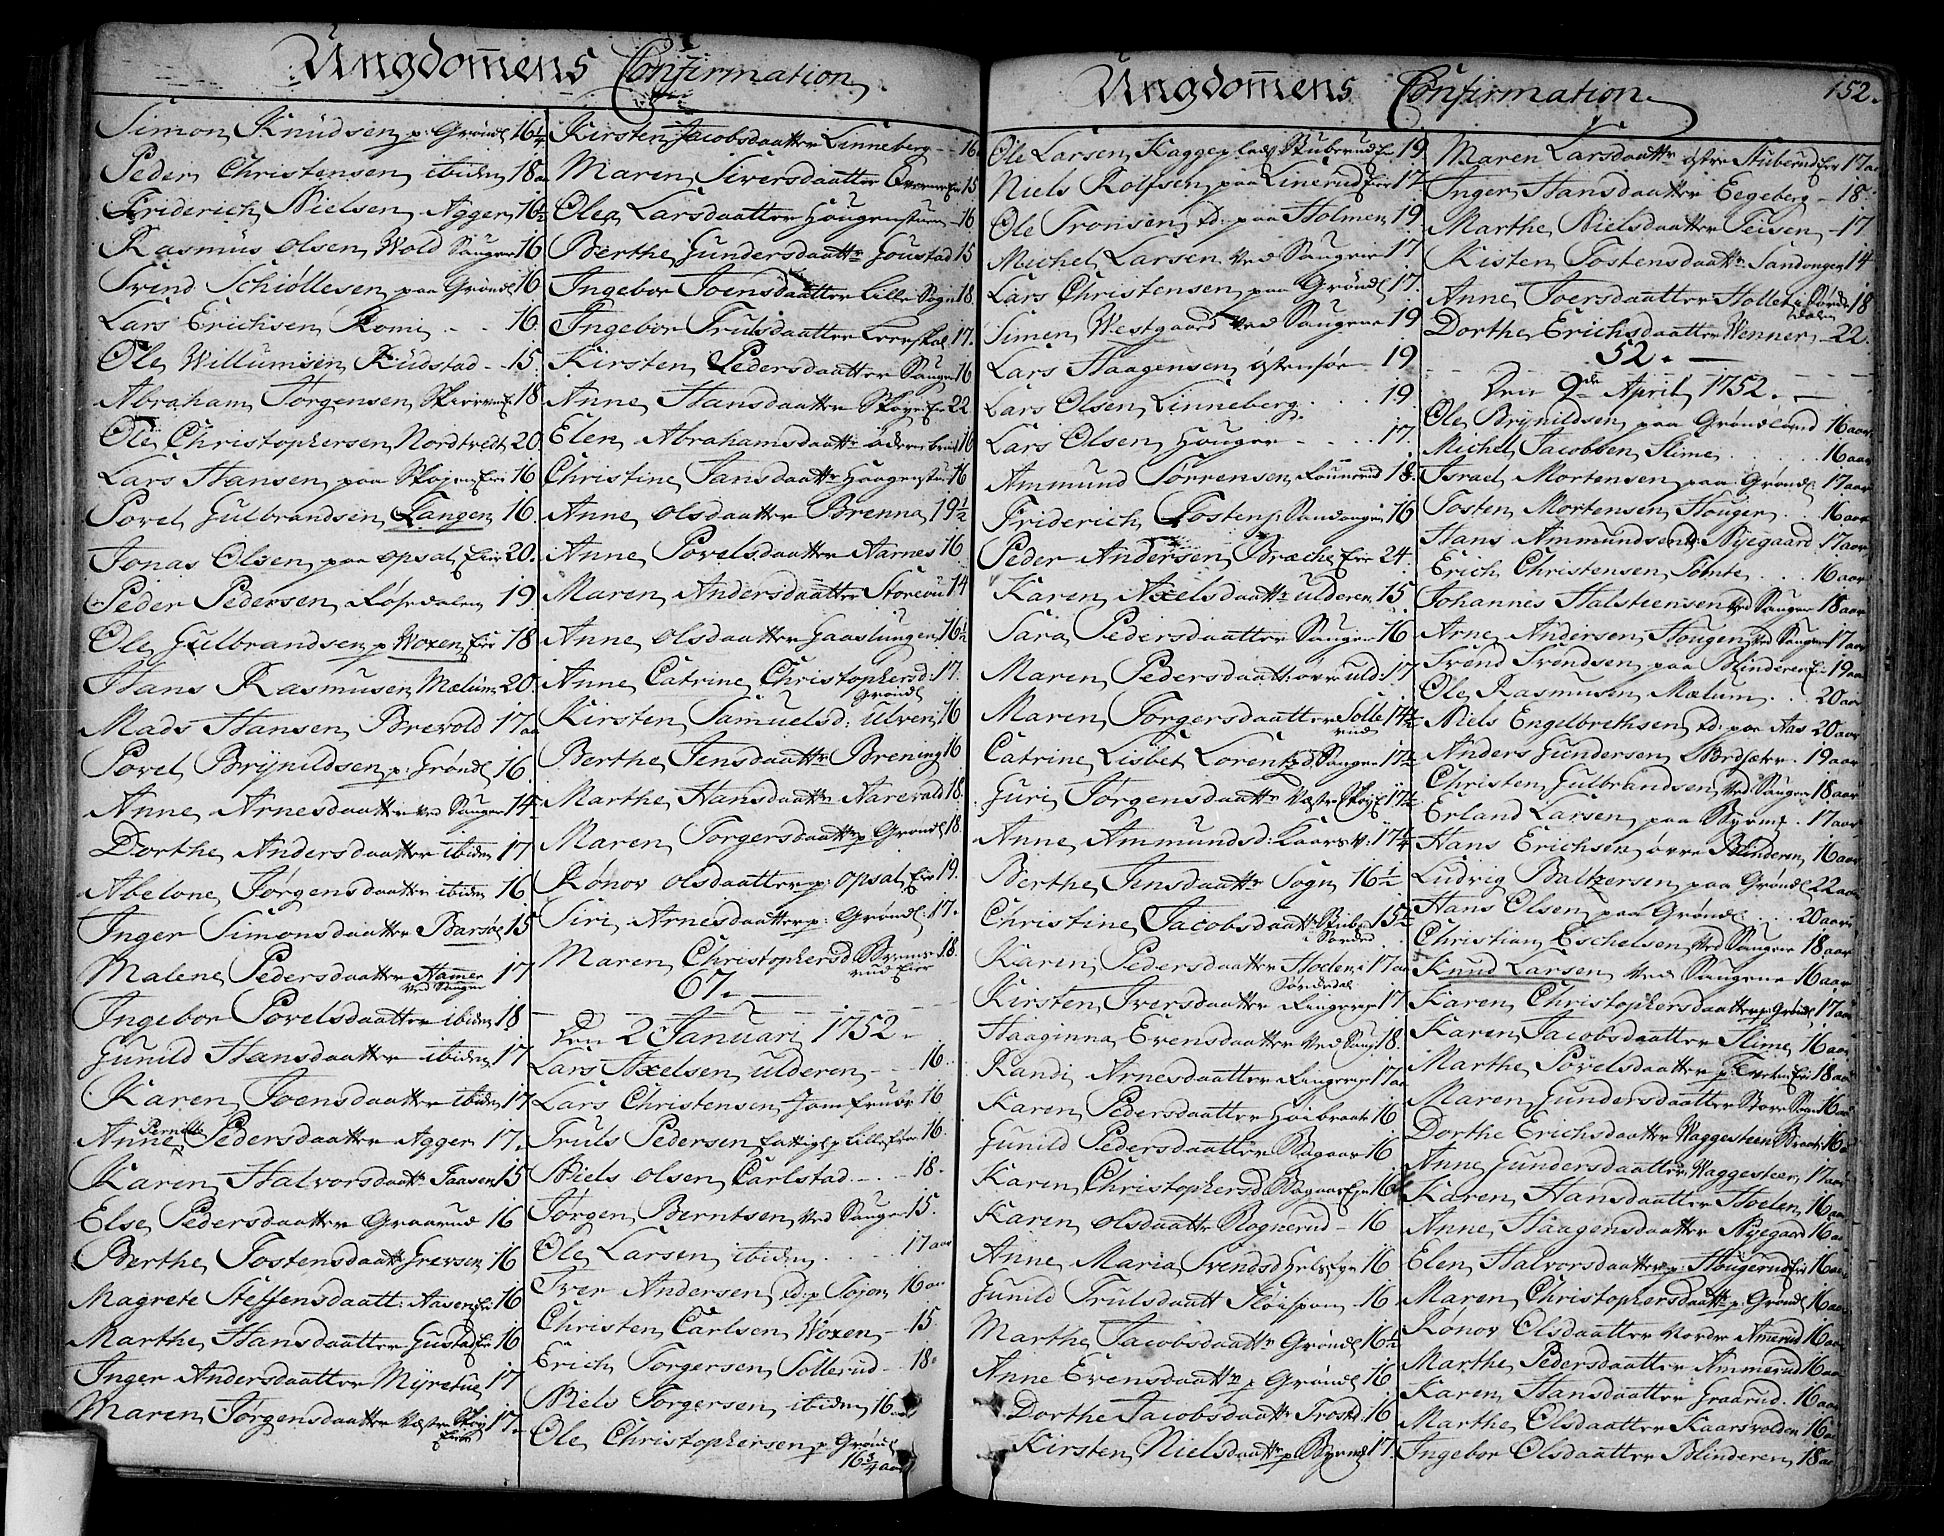 Ungdommens Confirmation
Simon Knudsen p: Grønl 16 1/4
Peder Christensen ibiden 18 a
Friderich Nielsen Agger 16 1/2
Rasmus Olsen Wold Saugene 16
Svend Schiøllesen paa Grønl 16
Lars Erichsen Rom . . . 16.
Ole Willumsen Rudstad - 15.
Abraham Jørgensen 18
Ole Christophersen Nordtvedt 20.
Lars Hansen paa Skøjen Eie 16
Povel Gulbrandsen Tangen 16.
Jonas Olsen paa Opsal Eie 20.
Peder Pedersen Røhrdalen 19
Ole Gulbrandsen p Woxen Eie 18
Hans Rasmusen Mælum 20.
Mads Hansen Brevold 17 aa
Povel Brijnildsen p: Grønl 16.
Anne Arnesdaatter ved Saugene 14
Dorthe Andersdaatter ibiden 17
Abelone Jørgensdaatter ibiden 16
Inger Simonsdaatter 15
Malene Pedersdaatter Hamer ved Saugen 17.
Ingebor Povelsdaatter ibiden 18
Gunild Hansdaatter ibiden 17
Karen Joensdaatter ibiden 17
Anne Pernille Pedersdaatter Agger 17.
Karen Halvorsdaatt: Taasen 15
Else Pedersdaatter Graarud 16
Berthe Tostensdaatt: Grevsen 16
Magrete Steffensdaatt: Aasen Eie 16
Marthe Hansdaatter Gustad Eie 16
Inger Andersdaatter Myretue 17
Maren Jørgensdaatter Væstre Skøj Eie 17.
Kirsten Jacobsdaatter Linneberg - 16.
Maren Siversdaatter 15
Olea Larsdaatter Haugenstuen 16
Berthe Gundersdaattr Goustad 15
Ingebor Joensdaatter Lille Sogn 18.
Ingebor Trulsdaatter 17.
Kirsten Pedersdaatter Saugene 16
Anne Hansdaatter Skøyen Eie 22
Elen Abrahamsdaattr 16
Christine Jansdaattr Haugenstu 16
Anne Olsdaatter Brenna 19 1/2
Anne Povelsdaatter Aarnes 16.
Maren Andersdaatter 14
Anne Olsdaatter Gaaslungen 16 1/2
Anne Catrine Christophersd: Grønl 17.
Kirsten Samuelsd: Ulven 16
Berthe Jensdaattr Brening 16
Marthe Hansdaattr Aarevold 18.
Maren Torgersdaattr p Grønl 18.
Rønov Olsdaatter p: Opsal Eie 19.
Siri Arnesdaatter p: Grønl 17.
Maren Christophersd Byrmerud Eier 18.
67. -
Den 2 Januari 1752.
Lars Axelsen Ulderen - - 16.
Lars Christensen 16
Truls Pedersen 16.
Niels Olsen Carlstad . - . 18.
Jørgen Berntsen ved Sauger 15.
Ole Larsen ibiden . . . 17 aar
Iver Andersen td: p Tøjen 16 aar
Christen Carlsen Woxen - 15.
Erich Torgersen Sollerud - 18.
Niels Torgersen ibiden 16
Ole Christophersen p Grønl 16 3/4 aar
Ungdommens Confirmation 152.
Ole Larsen Kagge 19
Niels Rolfsen paa Linerud Eie 17.
Ole Tronsen td: paa Holmen 19.
Michel Larsen ved Saugene 17
Lars Christensen paa Grønl 17.
Simen Westgaard ved Saugene 19
Lars Haagensen Østensøe - 19
Lars Olsen Linneberg . . . 19.
Lars Olsen Houger - . . . 17.
Ammund Sørrensen 18.
Friderich Tostens: Sandvigen 16
Peder Andersen Bræche Eie 24.
Karen Axelsdaattr Ulderen 15.
Sara Pedersdaatter Saugene 16
Maren Pedersdaatt: øvre uld: 17
Maren Torgersdaatter Sollerud 17 1/2
Catrine Lisbet Lorentzd. Saugene 17 1/2
Guri Jørgensdaattr Væstre Skøj E 17 1/2
Anne Ammundsd: Kaarsv: 17 1/4
Berthe Jensdaattr Sogn 16 1/2
Christine Jacobsdaattr 15 1/2
Karen Pedersdaatter Hoelen i Sørkedal 17 aa
Kirsten Iversdaatter Ringerige 17
Haaginna Evensdaatter ved Saug 18.
Randi Arnesdaatter Ringerige 17 aa
Karen Pedersdaatter Høibraat 16
Gunild Pedersdaatter Bagaas 16
Karen Christophersd Bagaas Eje 16
Karen Olsdaatter Rognerud - 16
Anne Maria Svendsd 16
Gunild Trulsdaatt 16
Marthe Jacobsdaattr Grønl 16 1/2
Anne Evensdaattr p Grønl 16
Dorthe Jacobsdaattr Trost 16
Kirsten Nielsdaattr p 17.
Maren Larsdaattr østre Stuberud Eie 17 aa
Inger Hansdaatter Eegeberg - 18.
Marthe Nielsdaatter Teisen - 17.
Kisten Tostensdaattr Sandvigen 14
Anne Joersdaatter Hollet i Sørkedalen 18
Dorthe Erichsdaatter Wenner - 22.
52. -
Den 9de April 1752. -
Ole Brijnildsen paa Grønland 16 aar
Michel Jacobsen Slime . . . 16 aar
Israel Mortensen paa Grønl 17 aar
Tosten Mortensen Houger . . 16 aar
Hans Ammundsen td: Nijegaard 17 aar
Erich Christensen Tømte . . . 16 aar
Johannes Halsteensen ved Saugene 18 aar
Arne Andersen Hougen ved Saugene 17 aar
Svend Svendsen paa Blinderen Eie 19 aar
Ole Rasmusen Mælum . . 20 aar
Niels Engelbrethsen td: paa Aas 20 aar
Anders Gundersen Nordsæter . 19 aar
Christen Gulbrandsen ved Saugene 18 aar
Erland Larsen paa 17 aar
Hans Erichsen øvre Blinderen 16 aar
Ludvig Baltzersen paa Grønl 22 aar
Hans Olsen paa Grønl . . . 20 aar
Christian Eschelsen ved Saugene 18 aar
Knud Larsen ved Saugene 16 aar
Karen Christophersdaatter p: Grønl 17 aar
Karen Jacobsdaatter Slime 16 aar
Marthe Povelsdaatter p: Tveten Eie 18 aar
Maren Gundersdaatter Store Sogn 16 aar
Dorthe Erichsdaatter Waggesteen Braat: 16 a
Anne Gundersdaatter Waggesteen 17 aar
Karen Hansdaatter Hoelen 16 aar
Anne Haagensdaatter Nijegaard 16 aar
Elen Halvorsdaatter p: Hougerud Eie 16 aar
Maren Christophersdaattr p: Grønl 16 aar
Ronov Olsdaatter Nordre Amerud 16 aar
Marthe Pedersdaatter Ammerud 16 aar
Karen Hansdaatter Graarud . 16 aar
Marthe Olsdaatter Kaarsvolden 16 aar
Ingebor Olsdaatter Blinderen 18 aa